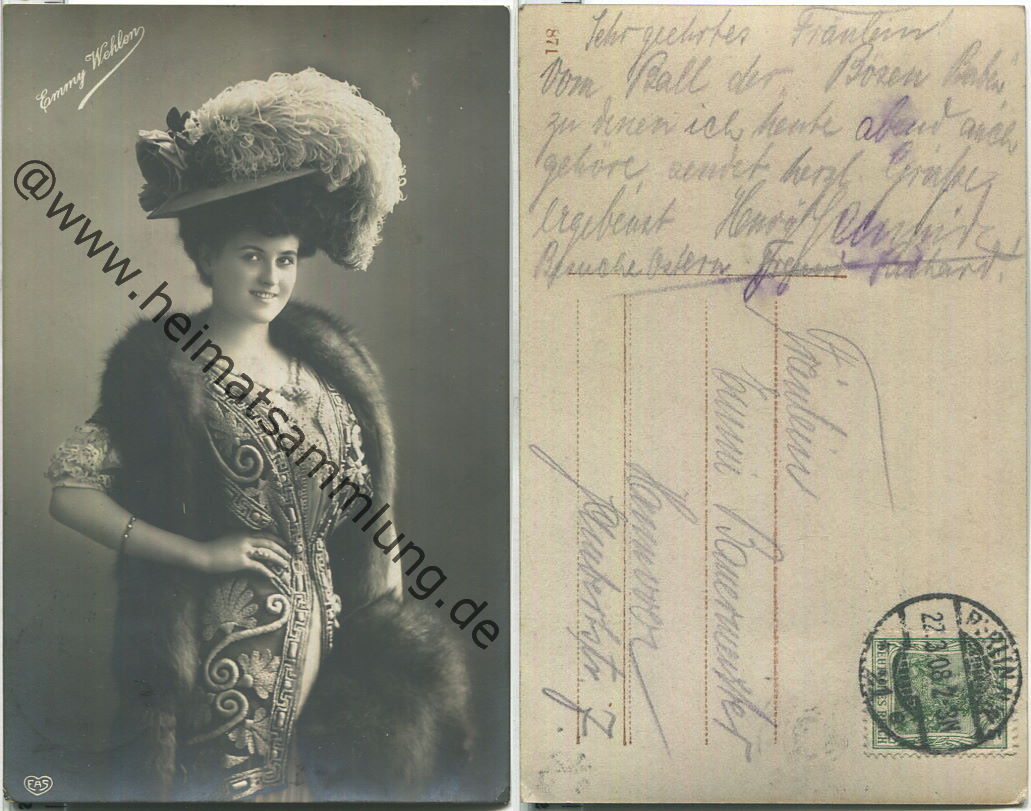 Emmy Wehlen
@www.heimatsammlung.de
EAS
871
Sehr geehrtes Fräulein
Vom Ball der Bösen Buben
zu denen ich heute abend auch
gehöre sendet herzl. Grüße
Ergebenst
Besuche Ostern
Fräulein
Bauermeister
Hannover
7
BERLIN
22.3.08.